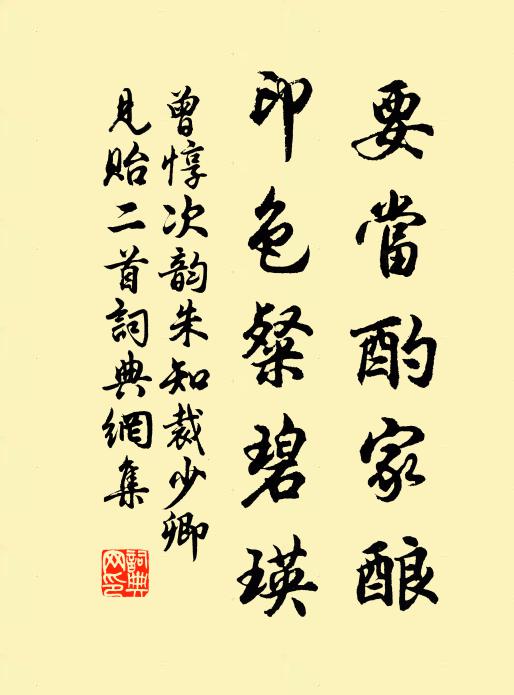 要當酌家酿
印色粲碧瑛
曾惇次韵朱知裁少卿
見贻二首詞典網集
詞典网印